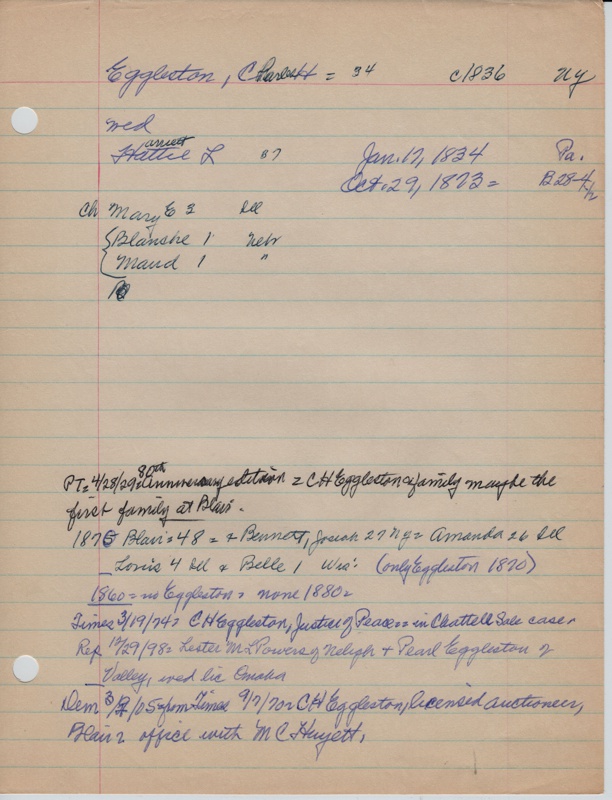 Eggleston, Charles H = 34 c1836 Ny
wed
Hattie L arriett 37 Jan. 17, 1834 Pa.
Oct. 29, 1873 = B28-4 1/2
Ch Mary E 3 Ill
Blanshe 1 Nebr
Maud 1 "
PT = 4/28/29 = 80th Anniversary edition = C H Eggleston & family maybe the
first family at Blair.
1870 Blair = 48 = + Bennett, Josiah 27 Ny = Amanda 26 Ill
Louis 4 Ill & Belle 1 Wis. (only Eggleston 1870)
1860 = no Eggleston = none 1880 =
Times 3/19/74 = C H Eggleston, Justice of Peace = in Chattell Sale case =
Rep 12/29/98 = Lester M Powers of Neligh + Pearl Eggleston of
Valley, wed lic Omaha
Dem 3/ /05 = from Times 9/7/70 = C H Eggleston, licensed auctioneer,
Blair = office with M C Huyett,